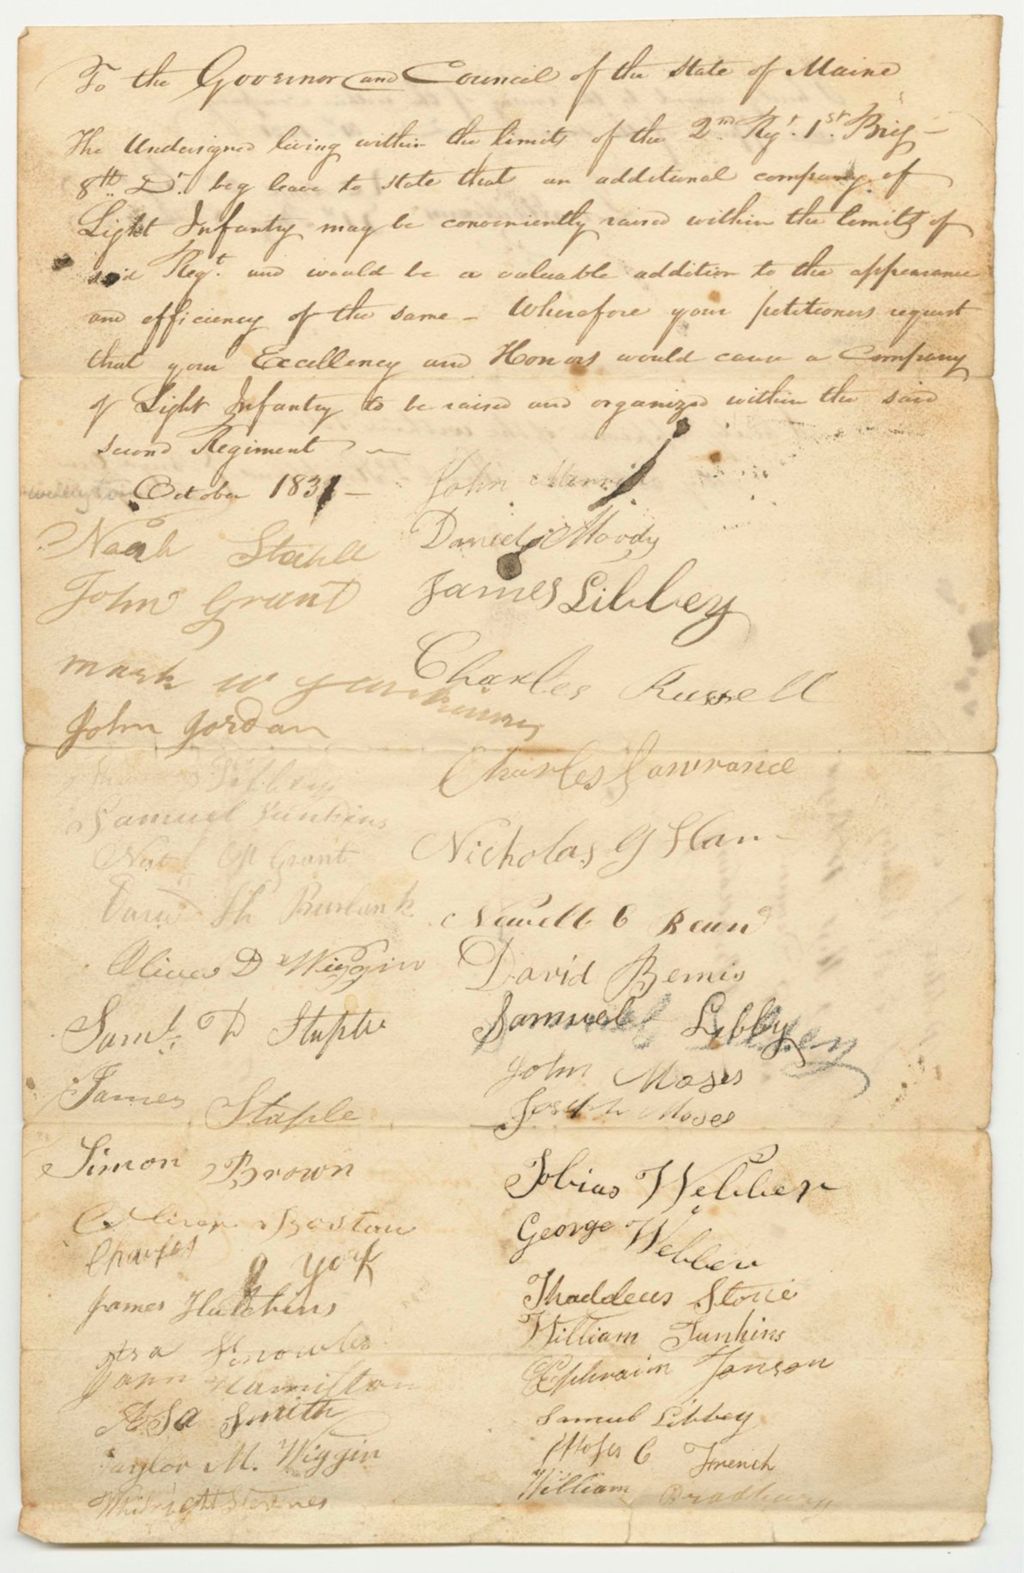 To the Governor and Council of the State of Maine
The Undersigned living within the limits of the 2nd Regt. 1st Brig
8th D. beg leave to state that an additional company of
Light Infantry may be conveniently raised within the limits of
said Regt. and would be a valuable addition to the appearance
and efficiency of the same - Wherefore your petitioners request
that your Excellency and Honors would cause a Company
of Light Infantry to be raised and organized within the said
second Regiment
October 1831 -
John
Noah Staple
Daniel Moody
John Grant
James Libbey
Charles Russell
Mark W
John Jordan
Charles Lawrance
Libbey
Samuel Junkins
Nicholas G Ham
Grant
Burbank
Newell C
Oliver D Wiggin
David Bemis
Saml. D Staple
Samuel Libbey
John Moses
James Staple
Joseph Moses
Simon Brown
Tobias Webber
George Webber
Charles York
James Hutchins
Thaddeus Stone
William Junkins
Asa Knowles
Ephraim Janson
Hamilton
Asa Smith
Samuel Libbey
Taylor M. Wiggin
Moses C French
William Bradbury